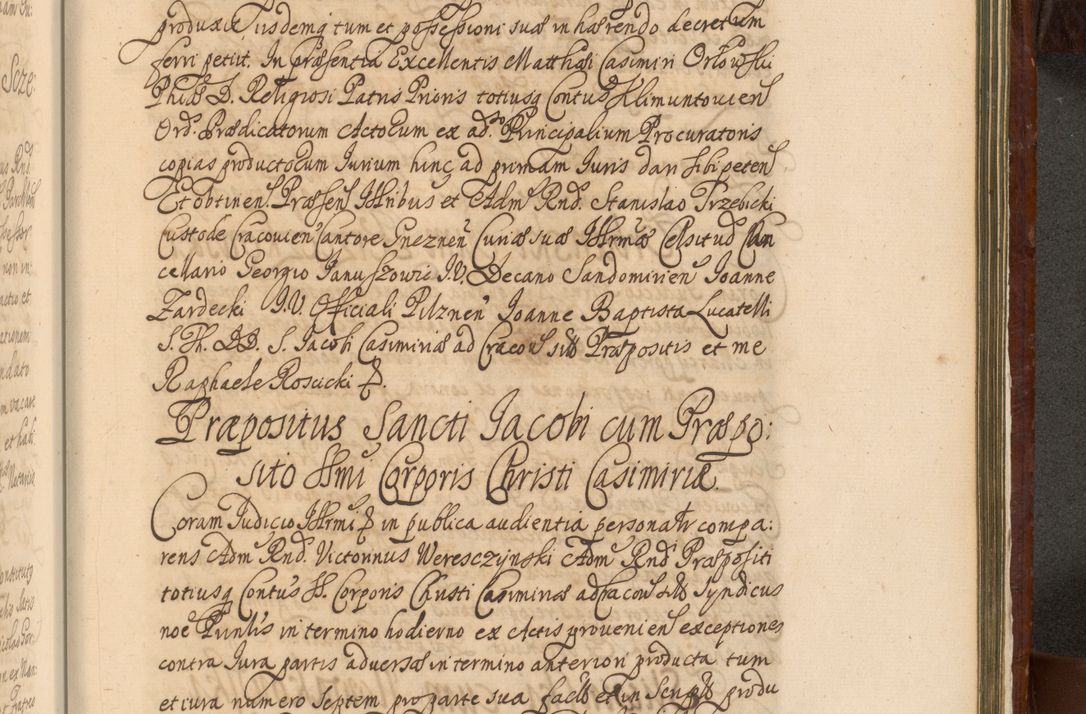 produxit iisdemq tum et possessioni suæ inhærendo decretum
ferri petiit. In præsentia Excellentis Matthæi Casimiri Orłowski
Phiæ D. Religiosi Patris Prioris totiusq Contus Klimuntovien
Ord. Prædicatorum Actorum ex ad. Principalium Procuratoris
copias productorum Iurium hinc ad primam Iuris dari sibi peten
Et obtinen. Præsen Illribus et Adm Rnd. Stanislao Trzebicki
Custode Cracovien Cantore Gneznen Curiæ suæ Illrmæ Celsitud Can
cellario Georgio Januszowic I.V. Decano Sandomirien Joanne
Zardecki I.V. Officiali Pilznen Joanne Baptista Lucatelli
S. Th. DD. S. Iacobi Casimiriæ ad Cracov sitæ Præpositis et me
Raphaele Rosucki
Præpositus Sancti Jacobi cum Præpo:
sito Ssmi Corporis Christi Casimiriæ
Coram Iudicio Illrmi in publica audientia personalr compa:
rens Adm Rnd. Victorinus Weresczynski Adm Rnd Præpositi
totiusq Contus SS. Corporis Christi Casimiriæ ad Cracov Syndicus
noe Punlis in termino hodierno ex Actis provenien exceptiones
contra Iura partis adversæ in termino anteriori producta tum
et iura numero septem pro parte sua et in produ